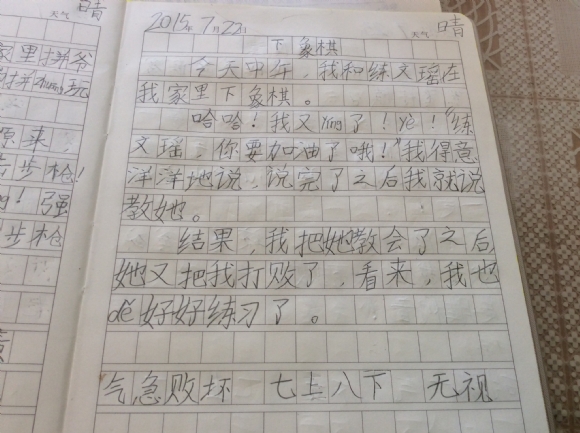 晴
天气
家里拼爷
玩
原来
步枪！
！强
步枪
2015年7月22日 天气 晴
下象棋
今天中午，我和练文瑶在
我家里下象棋。
哈哈！我又yíng了！yè！“练
文瑶，你要加油了哦！”我得意
洋洋地说，说完了之后我就说
教她。
结果，我把她教会了之后，
她又把我打败了，看来，我也
děi好好练习了。
气急败坏 七上八下 无视